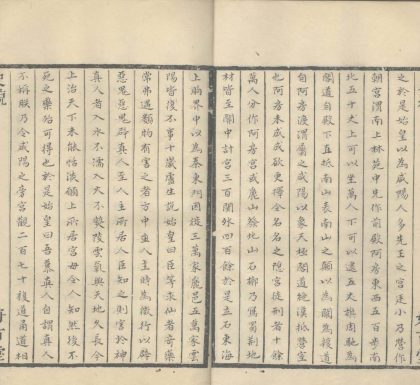 之於是始皇以為咸陽人多先王之宮廷小乃營作
朝宮渭南上林苑中先作前殿阿房東西五百步南
北五十丈上可以坐萬人下可以建五丈旗周馳為
閣道自殿下直抵南山表南山之顛以為闕為複道
自阿房渡渭屬之咸陽以象天極閣道絕漢抵營室
也阿房未成成欲更擇令名名之隱宮徒刑者十餘
萬人分作阿房宮或麗山發北山石槨乃寫蜀荊地
材皆至關中計宮三百關外四百餘於是立石東海
上朐界中以為秦東門因徙三萬家麗邑五萬家雲
陽皆復不事十歲盧生說始皇曰臣等求仙者奇藥
常弗遇類物有害之者方中人主時為微行以辟
惡鬼惡鬼辟真人至人主所居人臣知之則害於神
真人者入水不濡入火不爇陵雲氣與天地久長今
上治天下未能恬淡願上所居宮毋令人知然後不
死之藥殆可得也於是始皇曰吾慕真人自謂真人
不稱朕乃令咸陽之旁宮觀二百七十複道甬道相